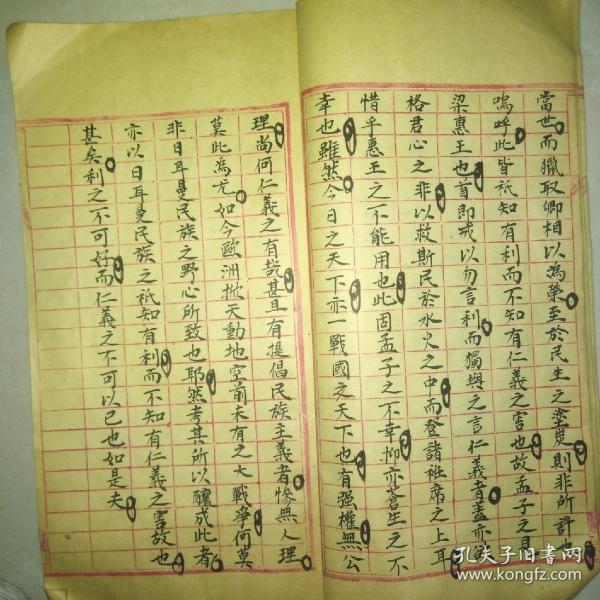 當世而獵取卿相以為榮至於民生之塗炭則非所計也
嗚呼此皆祇知有利而不知有仁義之害也故孟子之見
梁惠王也首即戒以勿言利而獨與之言仁義者蓋亦欲
格君心之非以救斯民於水火之中而登諸袵席之上耳
惜乎惠王之不能用也此固孟子之不幸抑亦蒼生之不
幸也雖然今日之天下亦一戰國之天下也有强權無公
理尚何仁義之有哉甚且有提倡民族主義者慘無人理
莫此為尤如今歐洲掀天動地空前未有之大戰爭何莫
非日耳曼民族之野心所致也耶然考其所以釀成此者
亦以日耳曼民族之祇知有利而不知有仁義之害故也
甚矣利之不可好而仁義之不可以已也如是夫
孔夫子旧书网
www.kongfz.com